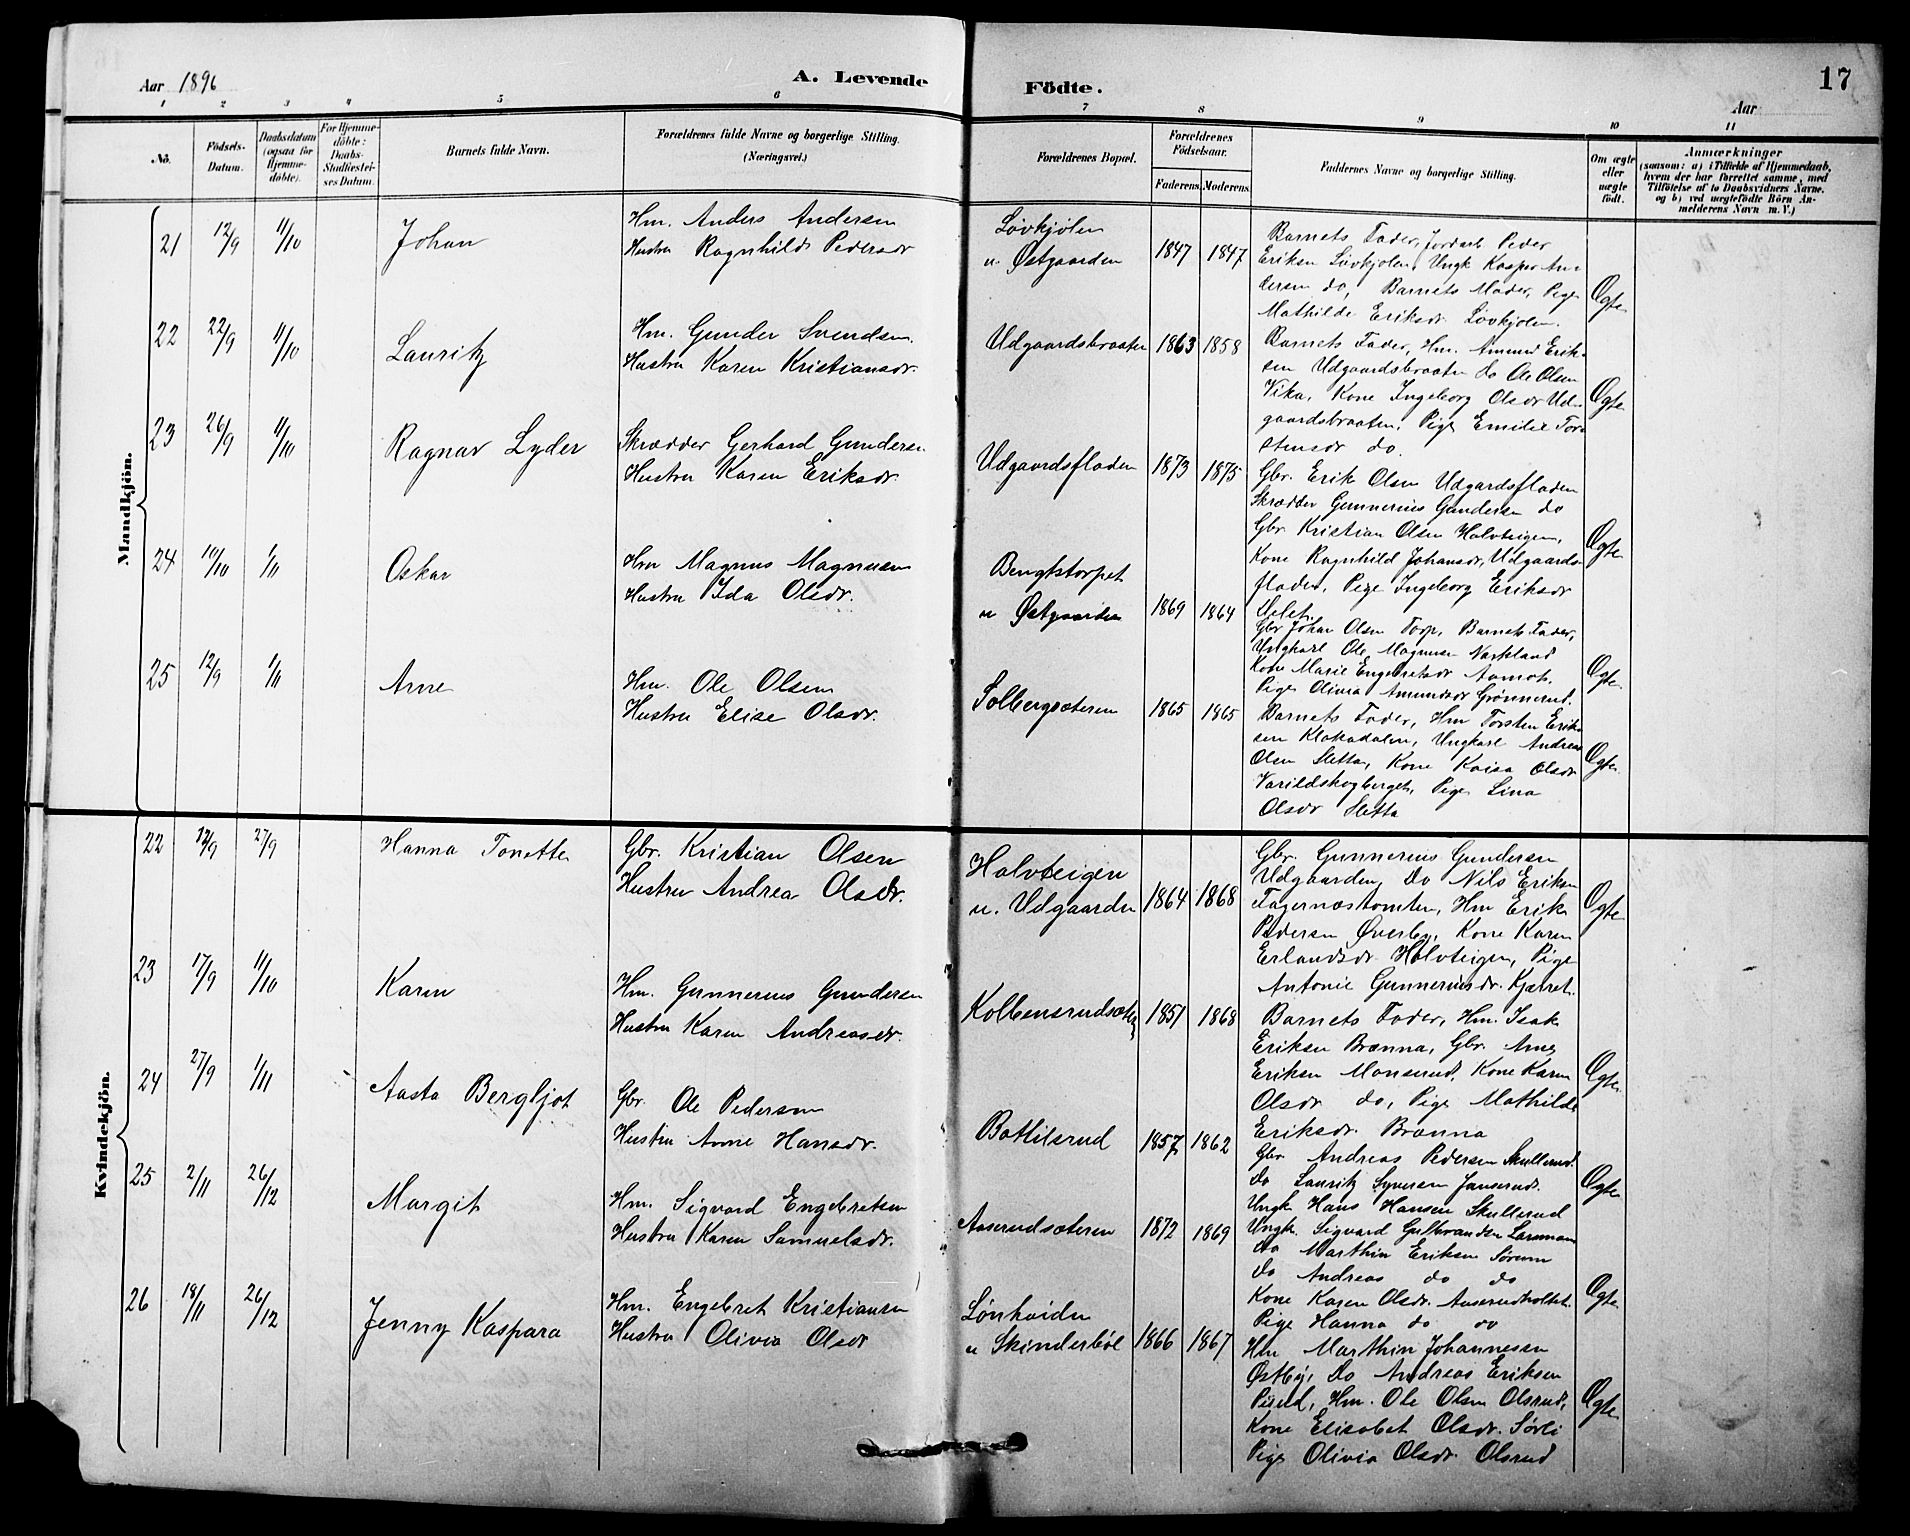 Aar 1896
A. Levende
Födte.
17
Aar
1 2 3 4 5 6 7 8 9 10 11
No.
Födsels-
Datum.
Daabsdatum
(ogsaa for
Hjemme-
döbte).
For Hjemme-
döbte:
Daabs-
Stadfæstel-
ses Datum.
Barnets fulde Navn.
Forældrenes fulde Navne og borgerlige Stilling.
(Næringsvei.)
Forældrenes Bopæl.
Forældrenes
Födselsaar.
Faderens. Moderens.
Faddernes Navne og borgerlige Stilling.
Om ægte
eller
uægte
födt.
Anmærkninger
(saasom: a) i Tilfælde af Hjemmedaab,
hvem der har forrettet samme, med
Tilföielse af to Daabsvidners Navne.
og b) ved uægtefödte Börn An-
melderens Navn m. V.)
Mandkjön.
21 12/9 11/10 Johan
Hm. Anders Andersen
Hustru Ragnhild Pedersdr
Løvkjølen
u. Østgaarden
1847 1847
Barnets Fader, Jordarb Peder
Eriksen Løvkjølen, Ungk Kasper An-
dersen do, Barnets Moder, Pige
Mathilde Eriksdr Løvkjølen.
Ægte
22 22/9 11/10 Lauritz
Hm. Gunder Svendsen
Hustru Karen Kristiansdr.
Udgaardsbraaten
1863 1858
Barnets Fader, Hm. Amund Erik-
sen Udgaardsbraaten do Ole Olsen
Vika, Kone Ingeborg Olsdr Ud-
gaardsbraaten, Pige Emilie Tor-
stensdr do.
Ægte
23 26/9 11/10 Ragnar Lyder
Skrædder Gerhard Gundersen
Hustru Karen Eriksdr.
Udgaardsfladen
1873 1875
Gbr. Erik Olsen Udgardsfladen
Skrædder Gunnerius Gundersen do
Gbr Kristian Olsen Halvteigen,
Kone Ragnhild Johansdr, Udgaards-
fladen, Pige Ingeborg Eriksdr
Ægte
24 10/10 1/11 Oskar
Hm Magnus Magnusen
Hustru Ida Olsdr.
Bengtstorpet
u Østgaarden
1869 1864
Gbr Johan Olsen Torp, Barnets Fader,
Ungkarl Ole Magnusen Narkland
Kone Marie Engebretsdr Aamot,
Pige Olivia Amundsdr Grønnerud.
Ægte
25 12/9 1/11 Arne
Hm. Ole Olsen
Hustru Elise Olsdr.
Solbergsæteren
1865 1865
Barnets Fader, Hm Torsten Erik-
sen Klakadalen, Ungkarl Andreas
Olsen Sletta, Kone Kaisa Olsdr
Varildskogberget, Pige Lina
Olsdr Sletta
Ægte
Kvindekjön.
22 12/9 27/9 Hanna Tonette
Gbr. Kristian Olsen
Hustru Andrea Olsdr.
Halvteigen
u. Udgaarden
1864 1868
Gbr. Gunnerius Gundersen
Udgaarden, Do Nils Eriksen
Fagernæstomten, Hm Erik
Pedersen Øverby, Kone Karen
Erlandsdr. Halvteigen, Pige
Antonie Gunneriusdr. Kjærret.
Ægte
23 17/9 11/10 Karen
Hm. Gunnerius Gundersen
Hustru Karen Andreasdr.
Kolbensrudsæter
1851 1868
Barnets Fader, Hm. Isak
Eriksen Brænna, Gbr. Arne
Eriksen Monserud, Kone Karen
Olsdr do, Pige Mathilde
Eriksdr. Brænna
Ægte
24 27/9 1/11 Aasta Bergljot
Gbr. Ole Pedersen
Hustru Anne Hansdr.
Bottilsrud
1857 1862
Gbr. Andreas Pedersen Skullerud.
Do Lauritz Syversen Janserud.
Ungk Hans Hansen Skullerud
Ægte
25 2/11 26/12 Margit
Hm. Sigvard Engebretsen
Hustru Karen Samuelsdr.
Aaserudsæteren
1872 1869
Ungk. Sigvard Gulbrandsen
do Marthin Eriksen Sørum
do Andreas do do
Kone Karen Olsdr. Aaserudholtet.
Pige Hanna do do
Ægte
26 18/11 26/12 Jenny Kaspara
Hm. Engebret Kristiansen
Hustru Olivia Olsdr
Lønhaiden
u Skinderbøl
1866 1867
Hm Marthin Johannesen
Østby, Do Andreas Eriksen
Hm. Ole Olsen Olsrud,
Kone Elisabet Olsdr. Sørli
Pige Olivia Olsdr. Olsrud
Ægte